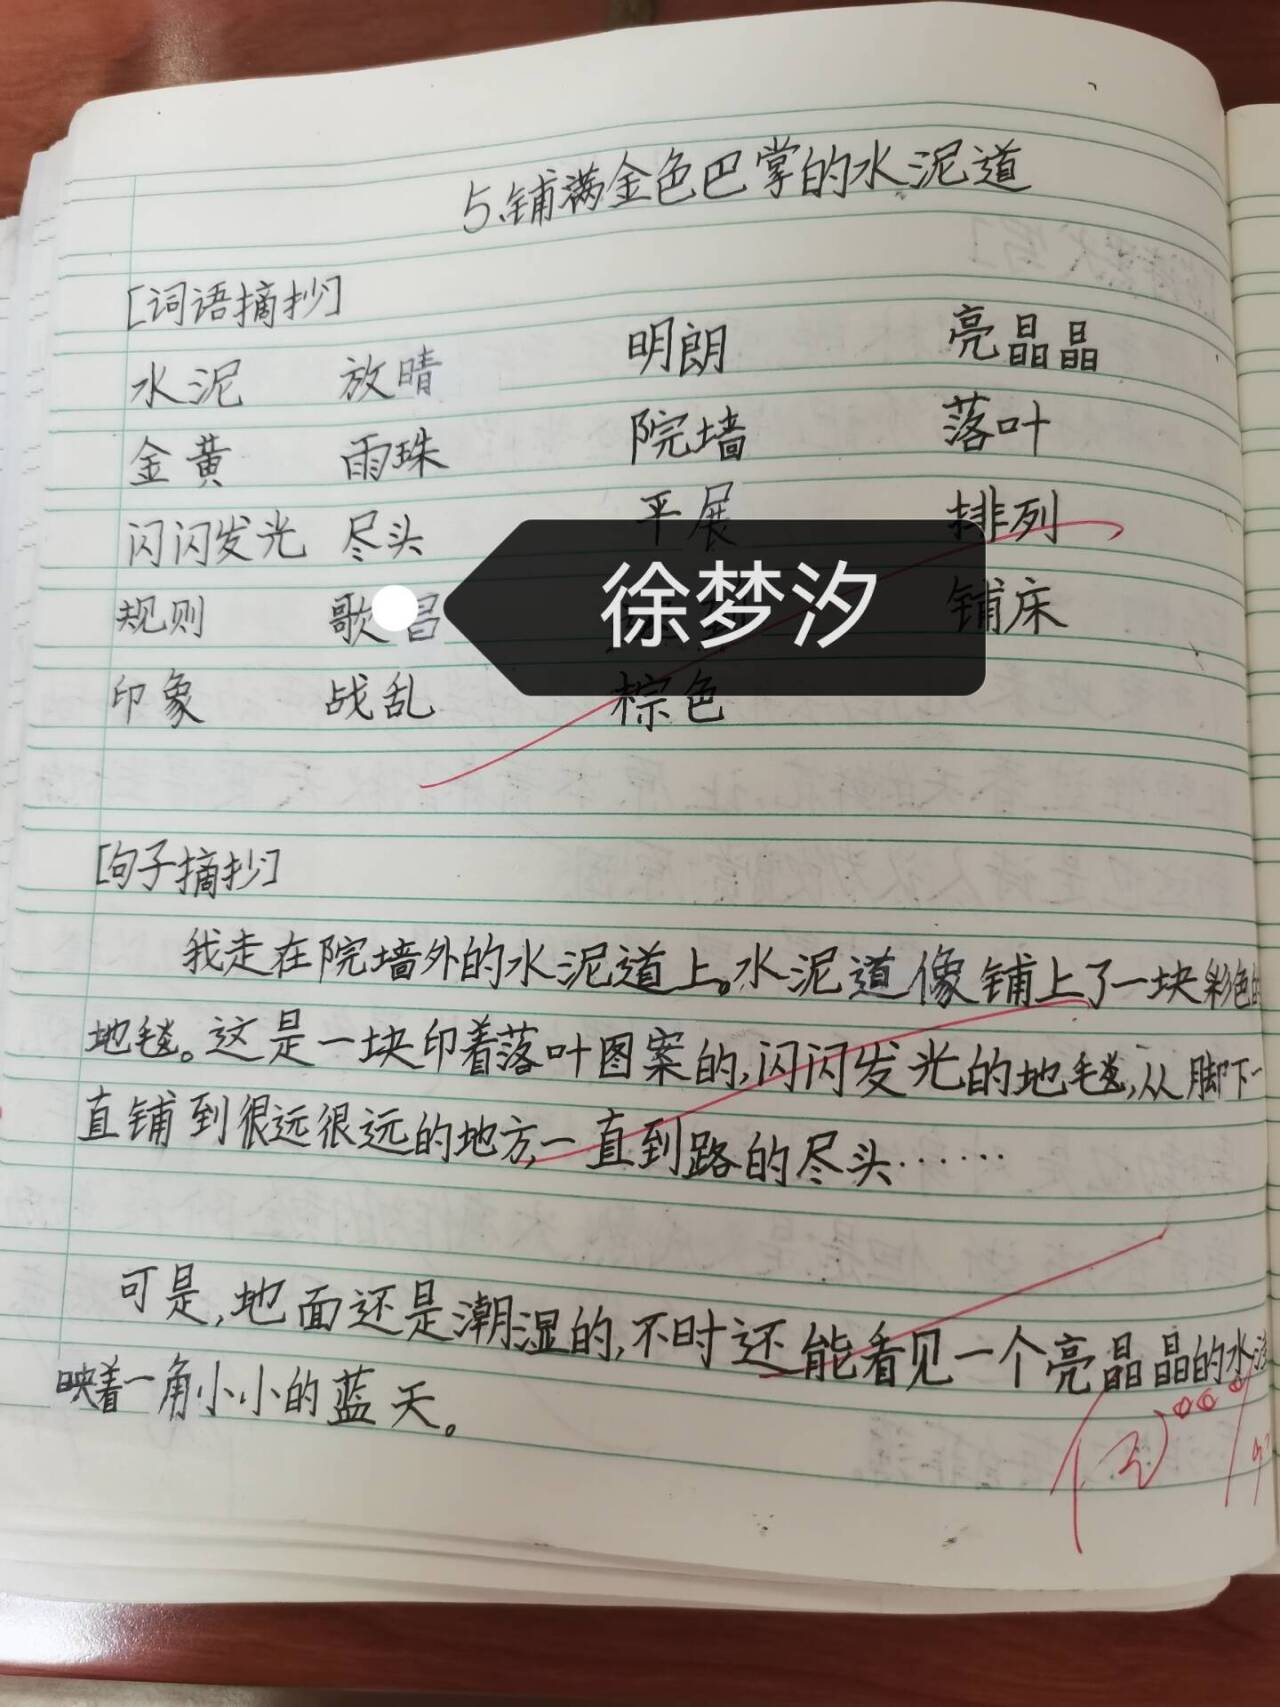 5、铺满金色巴掌的水泥道
[词语摘抄]
水泥 放晴 明朗 亮晶晶
金黄 雨珠 院墙 落叶
闪闪发光 尽头 平展 排列
规则 歌唱 铺床
徐梦汐
印象 战乱 棕色
[句子摘抄]
我走在院墙外的水泥道上。水泥道像铺上了一块彩色的
地毯。这是一块印着落叶图案的,闪闪发光的地毯,从脚下一
直铺到很远很远的地方,一直到路的尽头……
可是,地面还是潮湿的,不时还能看见一个亮晶晶的水洼
映着一角小小的蓝天。